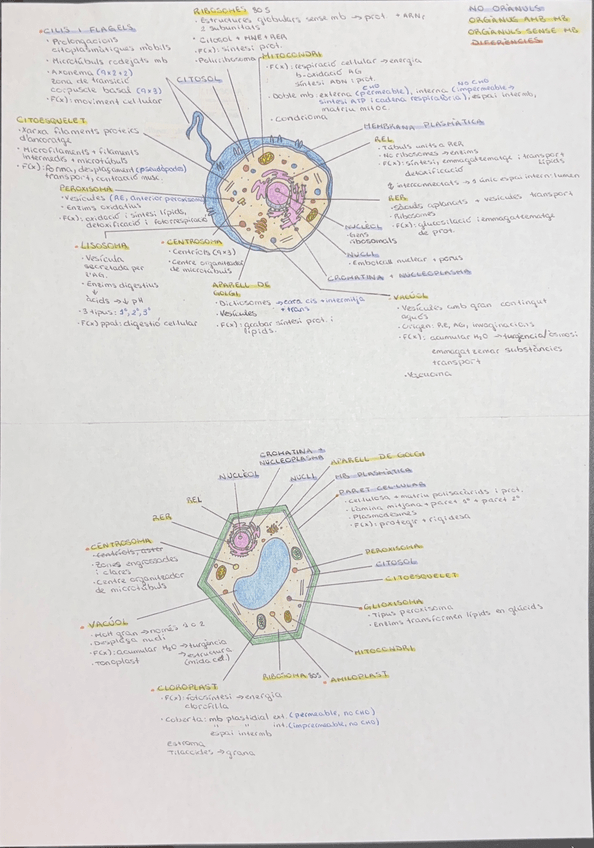 RIBOSOMES 80S
· Estructures globulars sense mb → prot. + ARNr
2 subunitats
· Citosol + MNE + RER
· F(x): síntesi prot.
· Poliribosoma
NO ORGÀNULS
ORGÀNULS AMB MB
ORGÀNULS SENSE MB
DIFERÈNCIES
· CILIS i FLAGELS
· Prolongacions
citoplasmàtiques mòbils
· Microtúbuls rodejats mb
· Axonema (9x2+2)
zona de transició
corpuscle basal (9x3)
· F(x): moviment cel·lular
CITOSOL
MITOCONDRI
· F(x): respiració cel·lular → energia
b-oxidació AG
síntesi ADN i prot.
· Doble mb: externa (permeable), interna (impermeable →
CHO
NO CHO
síntesi ATP i cadena respiratòria), espai intermb,
matriu mitoc.
· Condrioma
CITOESQUELET
· Xarxa filaments proteics
d'ancoratge
· Microfilaments + filaments
intermedis + microtúbuls
· F(x): forma, desplaçament (pseudòpodes)
transport, contracció musc.
MEMBRANA PLASMÀTICA
REL
· Túbuls units a RER
· No ribosomes → enzims
· F(x): síntesi, emmagatzematge i transport
lípids
detoxificació
interconnectats → 1 únic espai intern: lumen
RER
· Sàculs aplanats + vesícules transport
· Ribosomes
· F(x): glucosilació i emmagatzematge
de prot.
PEROXISOMA
· Vesícules (RE, anterior peroxisoma)
· Enzims oxidatius
· F(x): oxidació i síntesi lípids,
detoxificació i fotorespiració
NUCLÈOL
· Gens
ribosomals
NUCLI
· Embolcall nuclear + porus
CROMATINA + NUCLEOPLASMA
· LISOSOMA
· Vesícula
secretada per
l'AG.
· Enzims digestius
+
àcids → ↓ pH
· 3 tipus: 1º, 2º, 3º
· F(x) ppal: digestió cel·lular
· CENTROSOMA
· Centríols (9x3)
· Centre organitzador
de microtúbuls
APARELL DE
GOLGI
· Dictiosomes → cara cis + intermitja
+ trans
· Vesícules
· F(x): acabar síntesi prot. i
lípids.
· VACÚOL
· Vesícules amb gran contingut
aquós
· Origen: RE, AG, invaginacions
· F(x): acumular H₂O → turgència/osmosi
emmagatzemar substàncies
transport
· Vacuoma
CROMATINA +
NUCLEOPLASMA
NUCLÈOL
NUCLI
APARELL DE GOLGI
MB PLASMÀTICA
· PARET CEL·LULAR
· Cel·lulosa + matriu polisacàrids i prot.
· Làmina mitjana + paret 1º + paret 2º
· Plasmodesmes
· F(x): protegir + rigidesa
REL
RER
· CENTROSOMA
· Centríols, àster
· Zones engrossades
i clares
· Centre organitzador
de microtúbuls
PEROXISOMA
CITOSOL
CITOESQUELET
· GLIOXISOMA
· Tipus peroxisoma
· Enzims transformen lípids en glúcids
· VACÚOL
· Molt gran → només 1 o 2
· Desplaça nucli
· F(x): acumular H₂O → turgència
→ estructura
(mida cèl.)
· Tonoplast
MITOCONDRI
RIBOSOMA 80S
· AMILOPLAST
· CLOROPLAST
· F(x): fotosíntesi → energia
clorofil·la
· Coberta: mb plastidial ext (permeable, no CHO)
" " int. (impermeable, no CHO)
espai intermb
Estroma
Tilacoides → grana